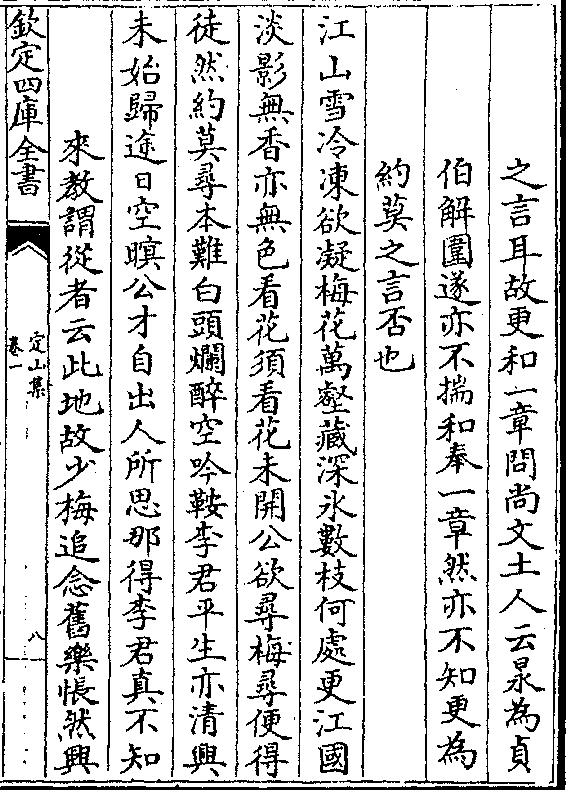 之言耳故更和一章問尚文土人云泉為貞
伯解圍遂亦不揣和奉一章然亦不知更為
約莫之言否也
江山雪冷凍欲凝梅花萬壑藏深氷數枝何處更江國
淡影無香亦無色看花須看花未開公欲尋梅尋便得
徒然約莫尋本難白頭爛醉空吟鞍李君平生亦清興
未始歸途日空暝公才自出人所思那得李君真不知
來教謂從者云此地故少梅追念舊樂悵然興
欽定四庫全書
定山集
卷一
八